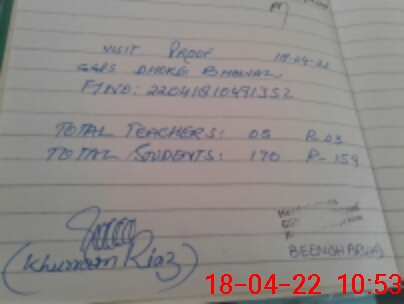 VISIT PROOF 18-04-22
GGPS DHOKE BHAWAL
FINO: 22041810491352
TOTAL TEACHERS: 05 P-03
TOTAL STUDENTS: 170 P-159
(Khurram Riaz)
18-04-22 10:53